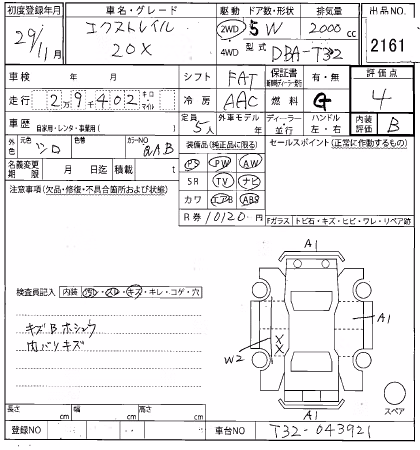 初度登録年月 車名・グレード 駆動 ドア数・形状 排気量 出品NO
29/11月 エクストレイル 20X 2WD 5W 2000cc 2161
4WD 型式 DBA-T32
車検 年 月 シフト FAT 保証書 有・無 評価点
走行 2万9千402 キロ マイル 冷房 AAC 燃料 G 4
車歴 自家用・レンタ・事業用( ) 定員 5人 外車モデル 年 ディーラー・並行 ハンドル 左・右 内装評価 B
外色 元色 シロ 色替 カラーNO QAB 装備品(純正品に限る) セールスポイント(正常に作動するもの)
名義変更期限 月 日迄 積載 t PS PW AW
注意事項(欠品・修復・不具合箇所および状態) SR TV ナビ
カワ エアB ABS
R券 10120 円
Fガラス トビ石・キズ・ヒビ・ワレ・リペア跡
A1
検査員記入 内装 汚レ・スレ・キズ・キレ・コゲ・穴
A1
キズBホシュウ
内バリキズ
W2
XX
スペア
A1
長さ cm 幅 cm 高さ cm
登録NO 車台NO T32-043921